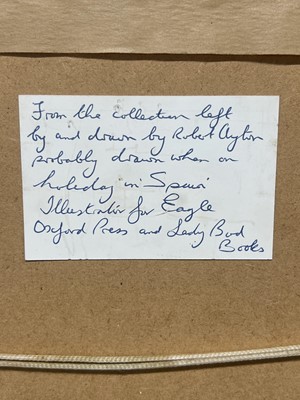 From the collection left
by and drawn by Robert Ayton
probably drawn when on
holiday in Spain
Illustrator for Eagle
Oxford Press and Lady Bird
Books